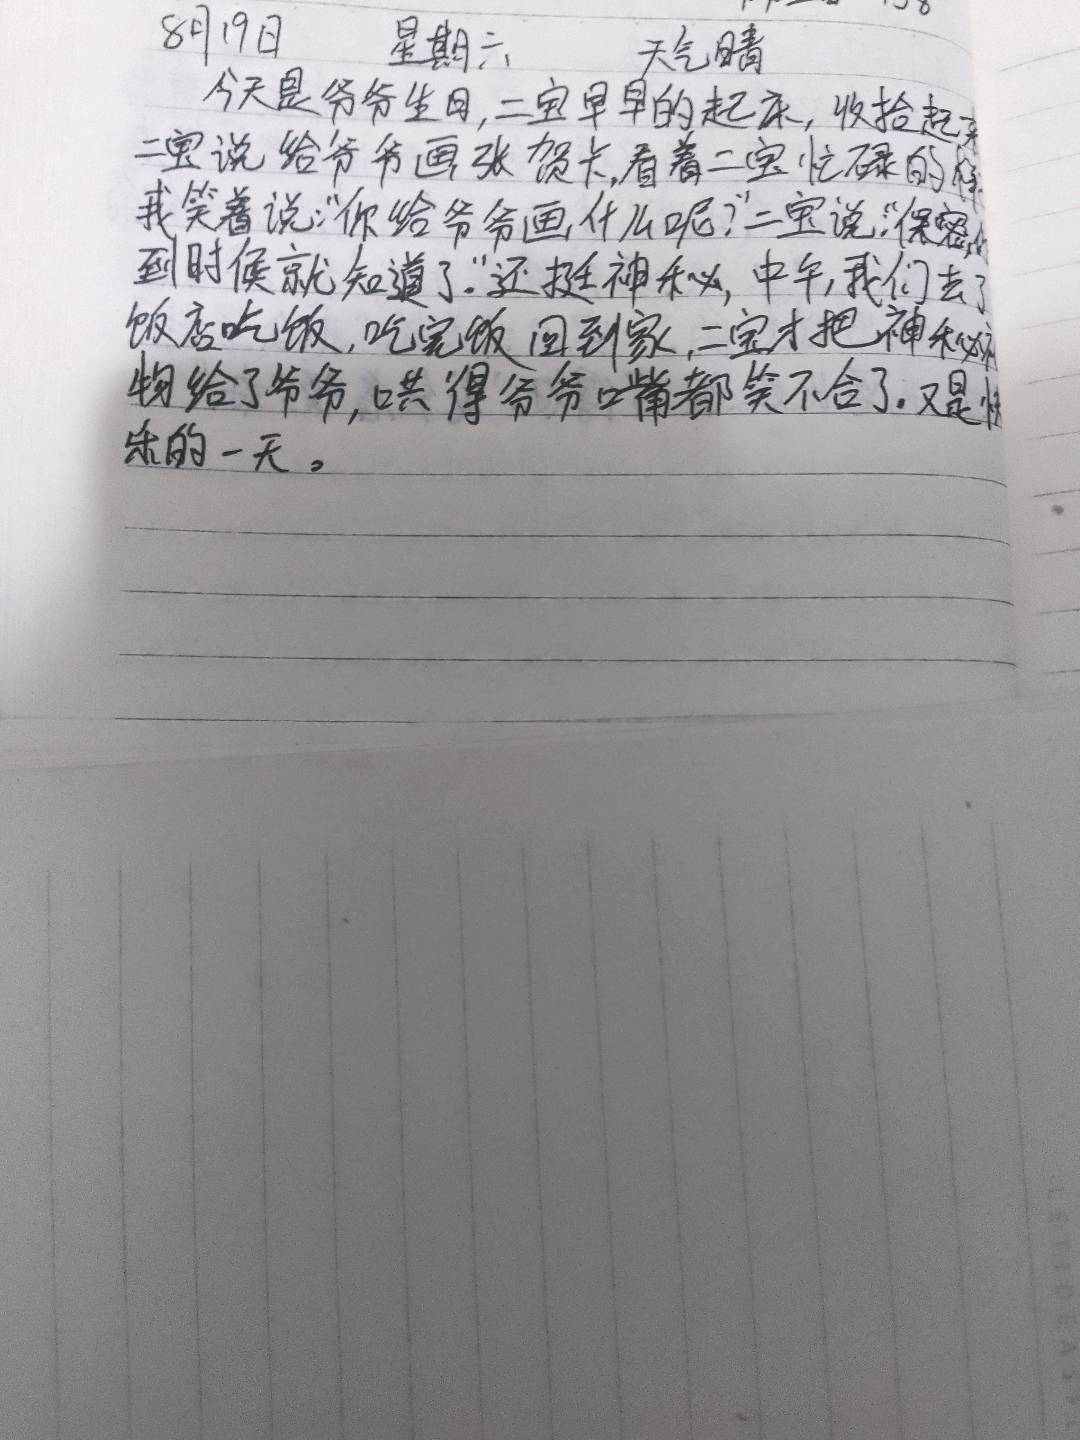 8月19日 星期六 天气晴
今天是爷爷生日,二宝早早的起床,收拾起来
二宝说给爷爷画张贺卡,看着二宝忙碌的样
我笑着说:“你给爷爷画什么呢?”二宝说:“保密,
到时候就知道了.”还挺神秘,中午,我们去了
饭店吃饭,吃完饭回到家,二宝才把神秘礼
物给了爷爷,哄得爷爷口嘴都笑不合了.又是快
乐的一天。
LETIDEAS